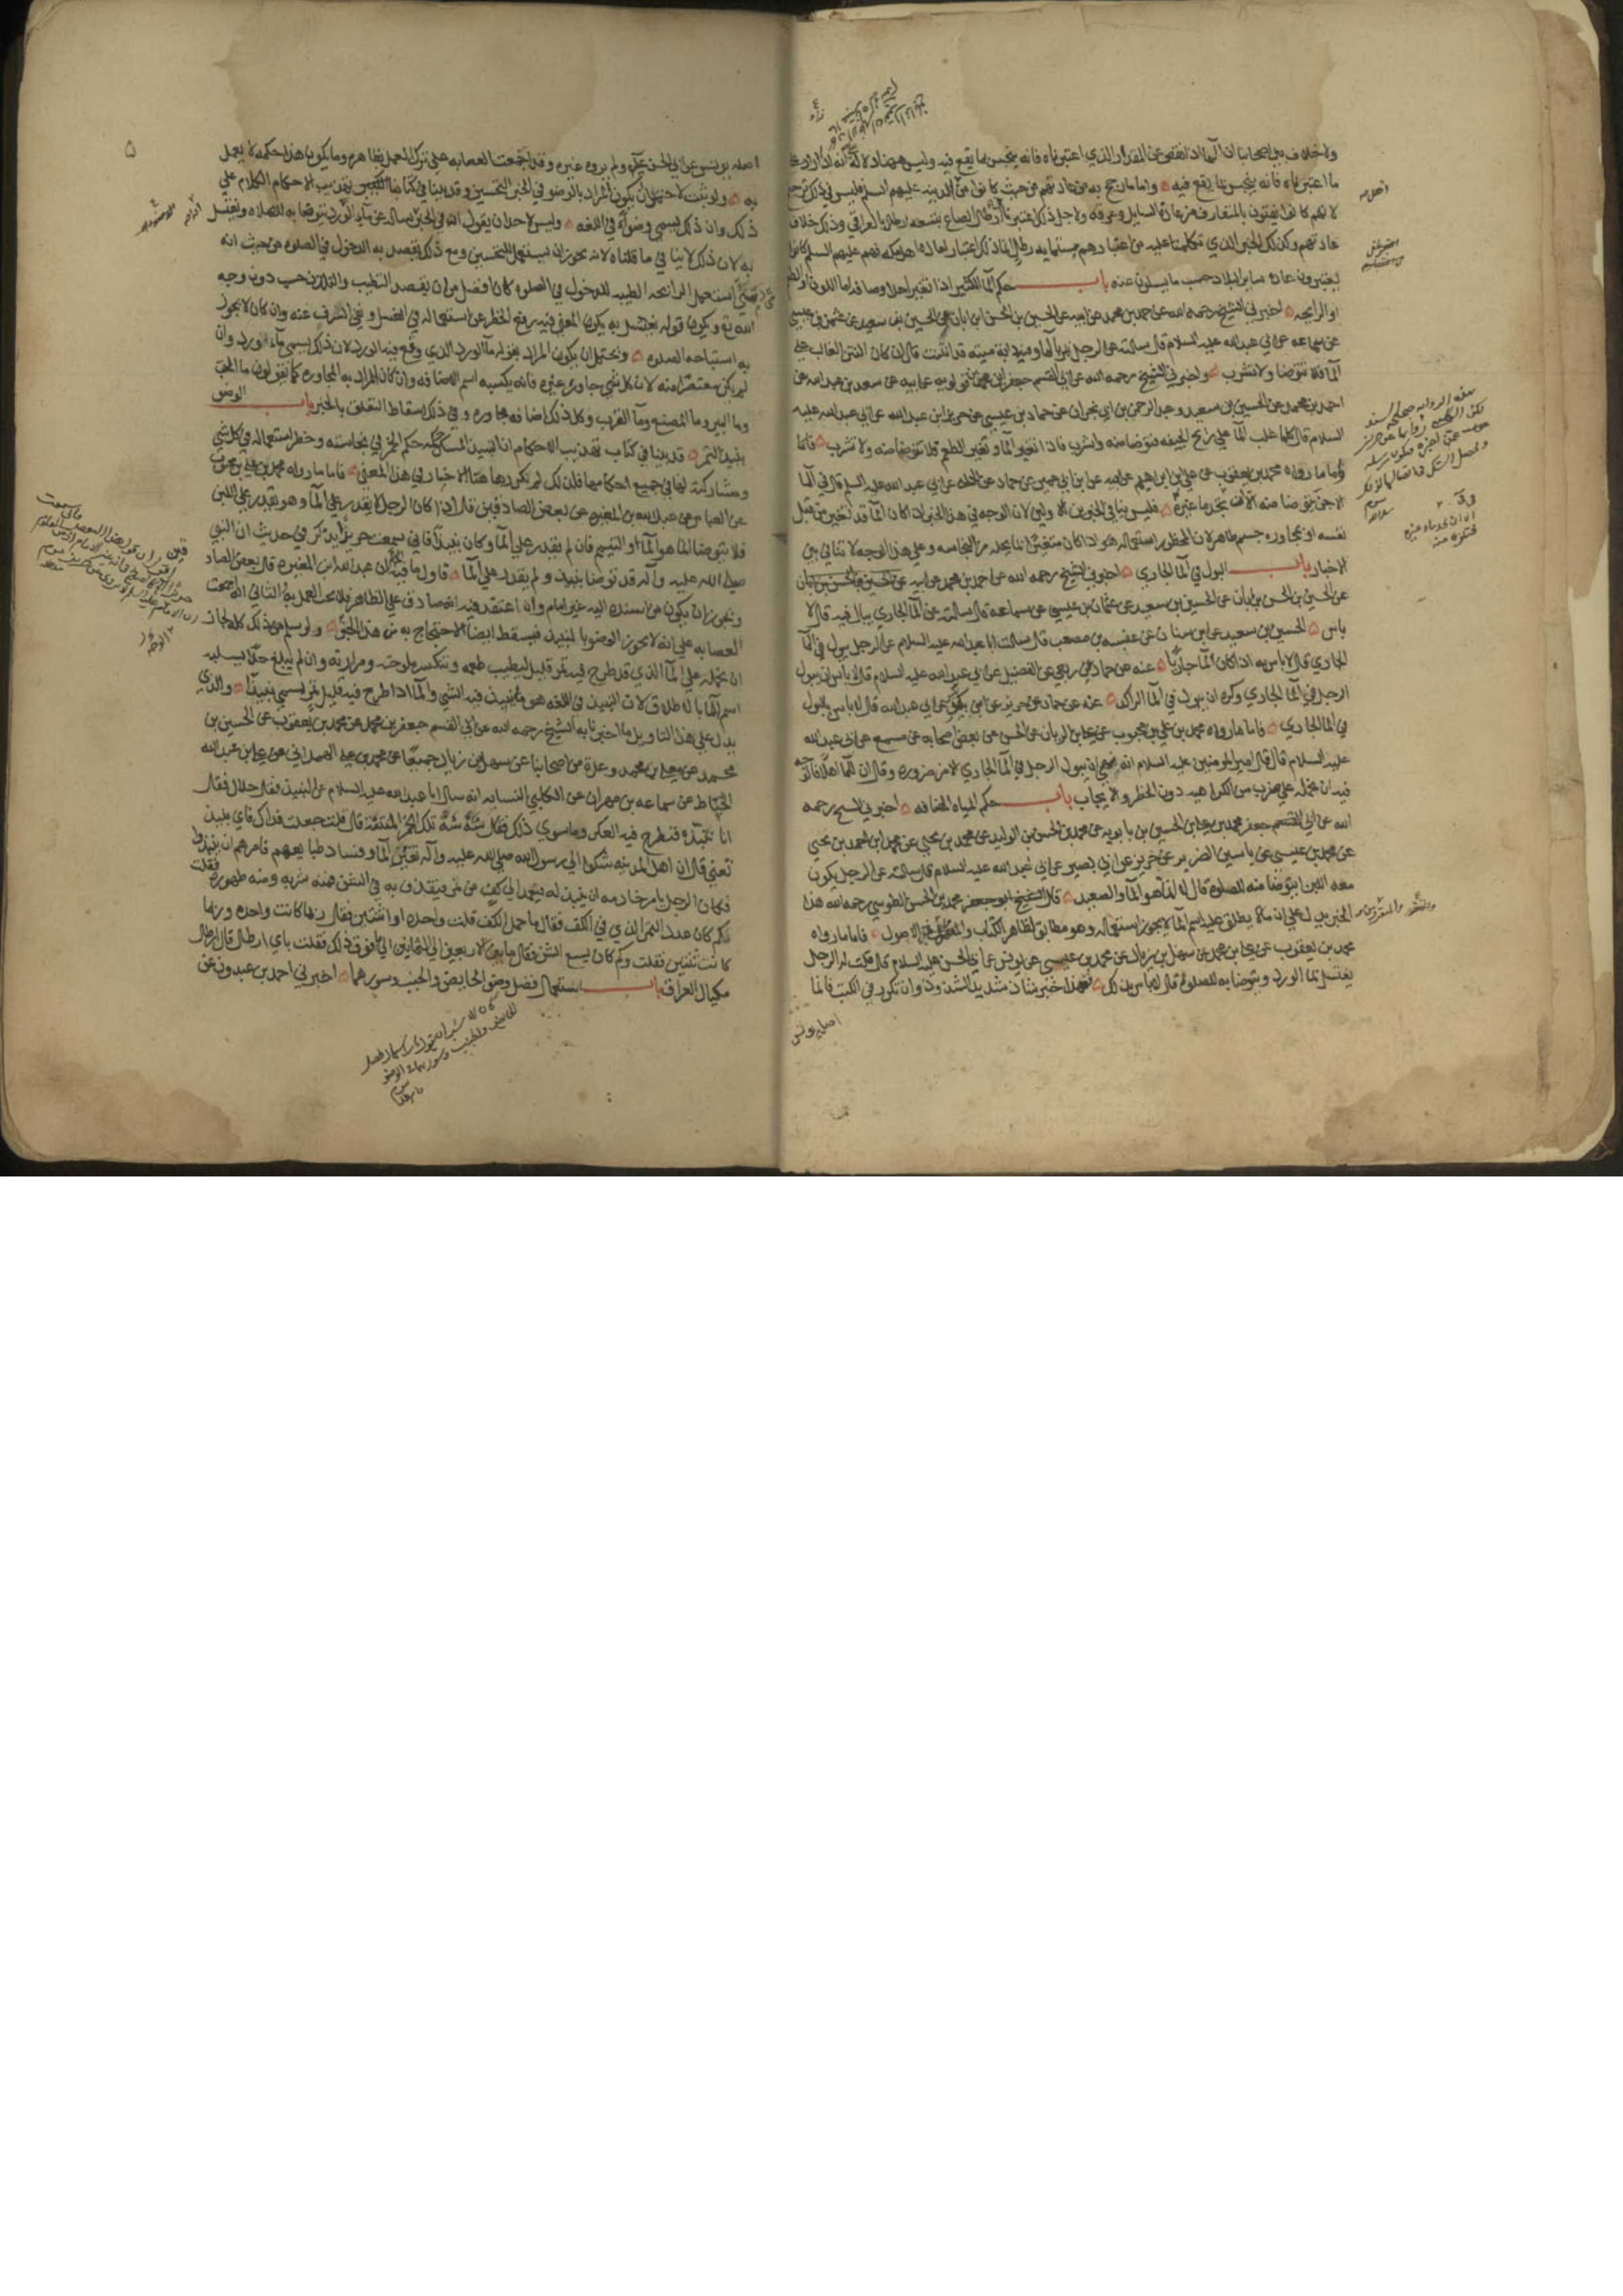 ولا خلاف بين اصحابنا ان الماء اذا نقص عن المقدار الذي اعتبرناه فانه ينجس بما يقع فيه وليس ههنا دلالة على انه اذا زاد على
ما اعتبرناه فانه ينجس بما يقع فيه واما ما رجح به من عادتهم من حيث كانوا من اهل المدينه عليهم السلم فليس في ذلك ترجيح
لانهم كانوا يفتون بالمتعارف من عادة السايل وعرفه ولاجل ذلك اعتبرنا في ارطال الصاع بتسعه ارطال بالعراقي وذلك خلاف
عادتهم وكذلك الخبر الذي تكلمنا عليه من اعتبارهم بستمايه رطل انما ذلك اعتبار لعادة اهل مكه فهم عليهم السلم كانوا
يعتبرون عادة ساير البلاد حسب ما يسلون عنه باب حكم الماء الكثير اذا تغير احد اوصافه اما اللون او الطعم
او الرايحه اخبرني الشيخ رحمه الله عن احمد بن محمد عن ابيه عن الحسين بن الحسن ابن ابان عن الحسين بن سعيد عن عثمن بن عيسى
عن سماعه عن ابي عبد الله عليه السلام قال سالته عن الرجل يمر بالماء وفيه دابة ميته قد انتنت قال ان كان النتن الغالب على
الماء فلا تتوضا ولا تشرب واخبرني الشيخ رحمه الله عن ابي القسم جعفر بن محمد بن قولويه عن ابيه عن سعد بن عبد الله عن
احمد بن محمد عن الحسين بن سعيد وعبد الرحمن بن ابي نجران عن حماد بن عيسى عن حريز ابن عبد الله عن ابي عبد الله عليه
السلام قال كلما غلب الماء على ريح الجيفه فتوضا منه واشرب فاذا تغير الماء وتغير الطعم فلا تتوضا منه ولا تشرب
فاما ما رواه محمد بن يعقوب عن علي بن ابراهيم عن ابيه عن ابن ابي عمير عن حماد عن الحلبي عن ابي عبد الله عليه السلم قال في الماء
الاجن يتوضا منه الا ان تجد ماء غيره فليس ينافي الخبرين الاولين لان الوجه في هذا الخبر اذا كان الماء قد تغير من قبل
نفسه او بمجاورة جسم طاهر لان المحظور استعماله هو اذا كان متغيرا بما يحله من النجاسه وعلى هذا الوجه لا تنافي بين
الاخبار باب البول في الماء الجاري اخبرني الشيخ رحمه الله عن احمد بن محمد عن ابيه
عن الحسين بن الحسن بن ابان عن الحسين بن سعيد عن عثمان بن عيسى عن سماعه قال سالته عن الماء الجاري يبال فيه قال لا
باس الحسين بن سعيد عن ابن سنان عن عنبسه بن مصعب قال سالت ابا عبد الله عليه السلام عن الرجل يبول في الماء
الجاري قال لا باس به اذا كان الماء جاريا عنه عن حماد عن ربعي عن الفضيل عن ابي عبد الله عليه السلام قال لا باس ان يبول
الرجل في الماء الجاري وكره ان يبول في الماء الراكد عنه عن حماد عن حريز عن ابن بكير عن ابي عبد الله قال لا باس بالبول
في الماء الجاري فاما ما رواه محمد بن علي بن محبوب عن علي بن الريان عن الحسن عن بعض اصحابه عن مسمع عن ابي عبد الله
عليه السلام قال قال امير المومنين عليه السلام انه نهى ان يبول الرجل في الماء الجاري الا من ضروره وقال ان للماء اهلا فالوجه
فيه ان نحمله على ضرب من الكراهيه دون الحظر والايجاب باب حكم المياه المضافه اخبرني الشيخ رحمه
الله عن ابي جعفر محمد بن علي بن الحسين بن بابويه عن محمد بن الحسن بن الوليد عن محمد بن يحيى عن محمد بن احمد بن يحيى
عن محمد بن عيسى عن ياسين الضرير عن حريز عن ابي بصير عن ابي عبد الله عليه السلام قال سالته عن الرجل يكون
معه اللبن ايتوضا منه للصلوه قال لا انما هو الماء والصعيد قال الشيخ ابو جعفر محمد بن الحسن الطوسي رحمه الله هذا
الخبر يدل على ان ما لا يطلق عليه اسم الماء لا يجوز استعماله وهو مطابق لظاهر الكتاب والاصول فاما ما رواه
محمد بن يعقوب عن علي بن محمد عن سهل بن زياد عن محمد بن عيسى عن يونس عن ابي الحسن عليه السلام قال قلت له الرجل
يغتسل بماء الورد ويتوضا به للصلوة قال لا باس بذلك فهذا خبر شاذ شديد الشذوذ وان تكرر في الكتب فانما
اصله يونس
۵
اصله يونس عن ابي الحسن عليه ولم يروه غيره وقد اجتمعت العصابه على ترك العمل بظاهره وما يكون هذا حكمه لا يعمل
به ولو ثبت لاحتمل ان يكون المراد بالوضو في الخبر التحسين وقد بينا في كتابنا الكبير تهذيب الاحكام الكلام على
ذلك وان ذلك يسمى وضوءا في اللغه وليس لاحد ان يقول انه في الخبر سال عن ماء الورد يتوضا به للصلاه ويغتسل
به لان ذلك لا ينافي ما قلناه لانه يجوز ان يستعمل للتحسين ومع ذلك يقصد به الدخول في الصلوه من حيث انه
متى استعمل الرايحه الطيبه للدخول في الصلوه كان افضل من ان يقصد التطيب والتلذذ حسب دون وجه
الله تع ويكون قوله يغتسل به يكون المعني فيه رفع الحظر عن استعماله في الغسل ونفي السرف عنه وان كان لا يجوز
به استباحه الصلوه ويحتمل ان يكون المراد بقوله ماء الورد الذي وقع فيه الورد لان ذلك يسمى ماء ورد وان
لم يكن معتصرا منه لان كل شي جاور غيره فانه يكسبه اسم الاضافه وان كان المراد به المجاوره كما تقولون ماء الحب
وماء البير وماء المصنع وماء القرب وكل ذلك اضافه مجاوره وفي ذلك اسقاط التعلق بالخبر باب الوضو
بنبيذ التمر قد بينا في كتاب تهذيب الاحكام ان النبيذ المسكر حكمه حكم الخمر في نجاسته وحظر استعماله في كل شي
ومشاركته لها في جميع احكامها فلذلك لم نكرر ههنا الاخبار في هذا المعنى فاما ما رواه محمد بن علي بن محبوب
عن العباس عن عبد الله بن المغيره عن بعض الصادقين قال اذا كان الرجل لا يقدر على الماء وهو يقدر على اللبن
فلا يتوضا انما هو الماء او التيمم فان لم يقدر على الماء وكان نبيذا فاني سمعت حريزا يذكر في حديث ان النبي
صلى الله عليه وآله قد توضا بنبيذ ولم يقدر على الماء فاول ما فيه ان عبد الله ابن المغيره قال بعض الصادقين
ويجوز ان يكون من اسنده اليه غير امام وان اعتقد فيه انه صادق على الظاهر فلا يجب العمل به والثاني انه اجمعت
العصابه على انه لا يجوز الوضو بالنبيذ فيسقط ايضا الاحتجاج به من هذا الوجه ولو سلم من ذلك كله لجاز
ان نحمله على الماء الذي قد طرح فيه تمر قليل ليطيب طعمه وتنكسر ملوحته ومرارته وان لم يبلغ حدا يسلبه
اسم الماء بالاطلاق لان النبيذ في اللغه هو ما ينبذ فيه الشي والماء اذا طرح فيه قليل تمر يسمى نبيذا والذي
يدل على هذا التاويل ما اخبرنا به الشيخ رحمه الله عن ابي القسم جعفر بن محمد عن محمد بن يعقوب عن الحسين بن
محمد عن معلى بن محمد وعدة من اصحابنا عن سهل بن زياد جميعا عن محمد بن علي الهمداني عن علي بن عبد الله
الخياط عن سماعه بن مهران عن الكلبي النسابه انه سال ابا عبد الله عليه السلام عن النبيذ فقال حلال فقال
انا ننبذه فنطرح فيه العكر وما سوى ذلك فقال شه شه تلك الخمر المنتنة قال قلت جعلت فداك فاي نبيذ
تعني قال ان اهل المدينه شكوا الى رسول الله صلى الله عليه وآله تغير الماء وفساد طبايعهم فامرهم ان ينبذوا
فكان الرجل يامر خادمه ان ينبذ له فيعمد الى كف من تمر فيقذف به في الشن فمنه شربه ومنه طهوره فقلت
فكم كان عدد التمر الذي في الكف فقال ما حمل الكف قلت واحده او اثنتين فقال ربما كانت واحده وربما
كانت ثنتين فقلت وكم كان يسع الشن فقال ما بين الاربعين الى الثمانين الى ما فوق ذلك فقلت باي ارطال قال ارطال
مكيال العراق باب استعمال فضل وضو الحايض والجنب وسورهما اخبرني احمد بن عبدون عن